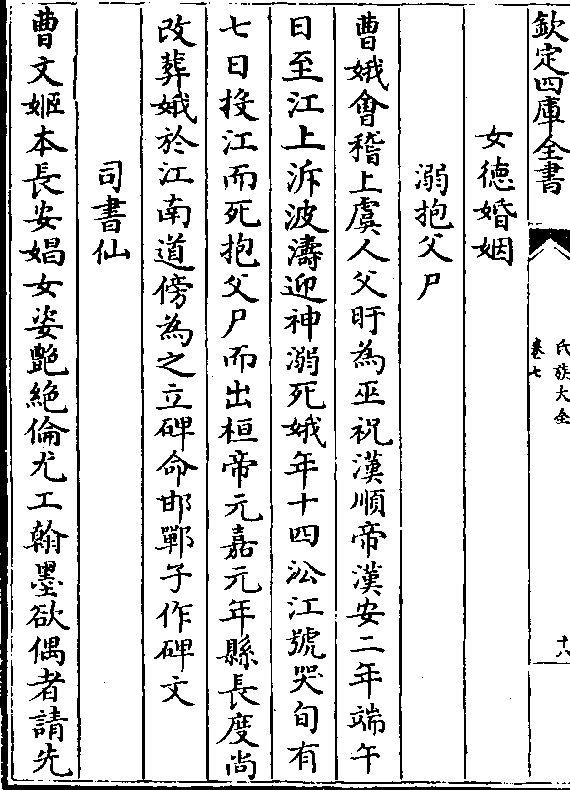 欽定四庫全書
氏族大全
卷七
十八
女徳婚姻
溺抱父尸
曹娥會稽上虞人父盱為巫祝漢順帝漢安二年端午
日至江上泝波濤迎神溺死娥年十四㳂江號哭旬有
七日投江而死抱父尸而出桓帝元嘉元年縣長度尚
改葬娥於江南道傍為之立碑命邯鄲子作碑文
司書仙
曹文姬本長安娼女姿艶絶倫尤工翰墨欲偶者請先